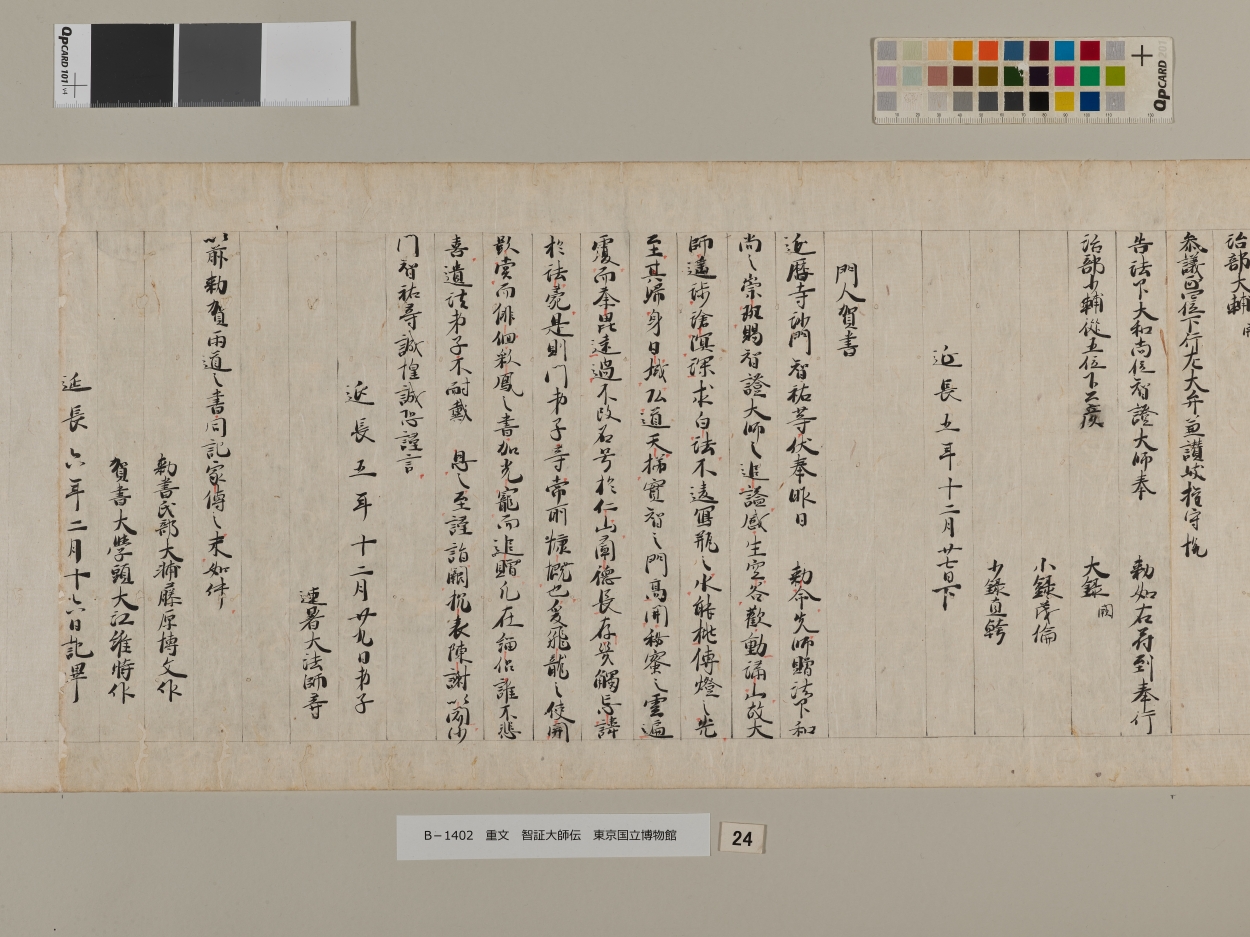 治部大輔
参議四位下行左大弁兼讃岐権守
告法下大和尚位智證大師奉　勅如右府到奉行
治部少輔従五位下　大録
少録茂倫
少録直
延長五年十二月廿七日下
門人賀書
延暦寺沙門智祐等伏奉昨日　勅命先師贈法下和
尚之崇班賜智證大師之追諡感生空谷歓動満山故大
師遠渉滄溟深求白法不遠写瓶之水能挑傳燈之光
至其帰身日城弘道天梯實智之門高開秘蜜之雲遍
覆而奉毘遠過不改石号於仁山蘭徳長存
於法是則門弟子等常所慷慨也爰飛龍之使開
而徘徊彩鳳之書加光寵而追贈凡在緇侶誰不悲
喜遺法弟子不耐戴　恩之至謹詣闕抗表陳謝以聞沙
門智祐等誠惶誠恐謹言
延長五年十二月廿九日弟子
連署大法師等
以前勅賀両道之書同記家傳之末如件
勅書民部大輔藤原博文作
賀書大學頭大江維時作
延長六年二月十六日記畢
B－1402　重文　智証大師伝　東京国立博物館
24
QPCARD 101 v4
QPCARD 201